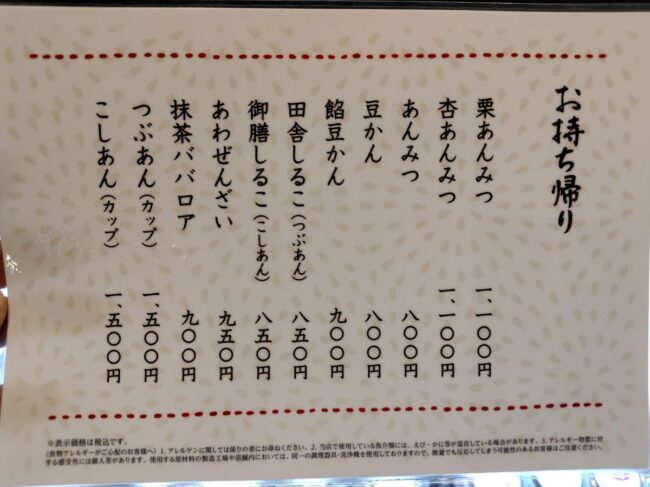 お持ち帰り
栗あんみつ 一、一〇〇円
杏あんみつ 一、一〇〇円
あんみつ 八〇〇円
豆かん 八〇〇円
餡豆かん 九〇〇円
田舎しるこ(つぶあん) 八五〇円
御膳しるこ(こしあん) 八五〇円
あわぜんざい 九五〇円
抹茶ババロア 九〇〇円
つぶあん(カップ) 一、五〇〇円
こしあん(カップ) 一、五〇〇円
※表示価格は税込です。
(食物アレルギーがご心配のお客様へ) 1. アレルゲンに関しては係りの者にお尋ねください。2. 当店で使用している魚介類には、えび・かに等が混在している場合があります。3. アレルギー物質に対
する感受性には個人差があります。使用する原材料の製造工場や店舗内においては、同一の調理器具・洗浄機を使用しておりますので、微量でも反応してしまう可能性のあるお客様はご注意ください。